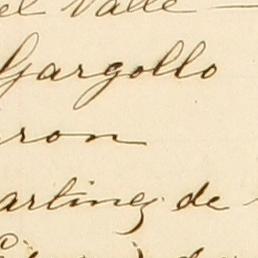 el Valle
Gargollo
ron
artinez de